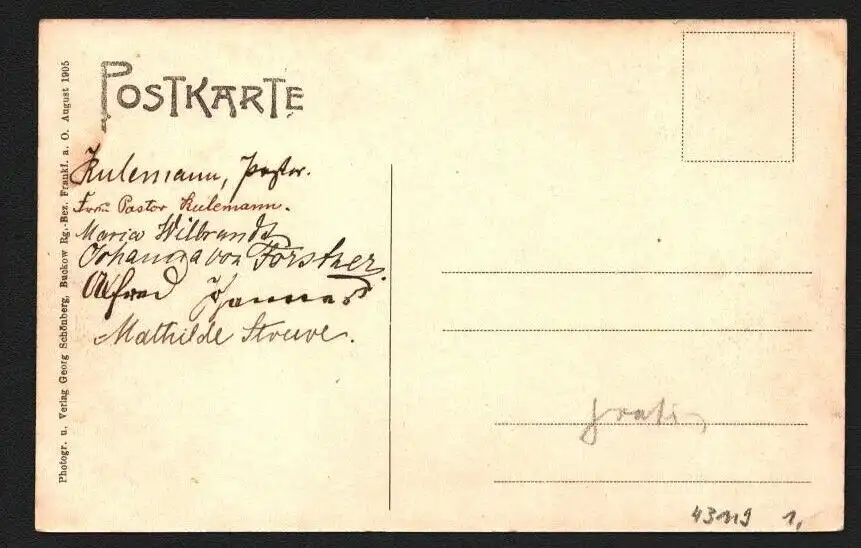 POSTKARTE
Kulemann, Pastor.
Frau Pastor Kulemann.
Maria Wilbrandt
Johanna von Forstner.
Alfred Johannes
Mathilde Struve.
gratis
43119 1,
Photogr. u. Verlag Georg Schönberg, Buckow Rg.-Bez. Frankf. a. O. August 1905